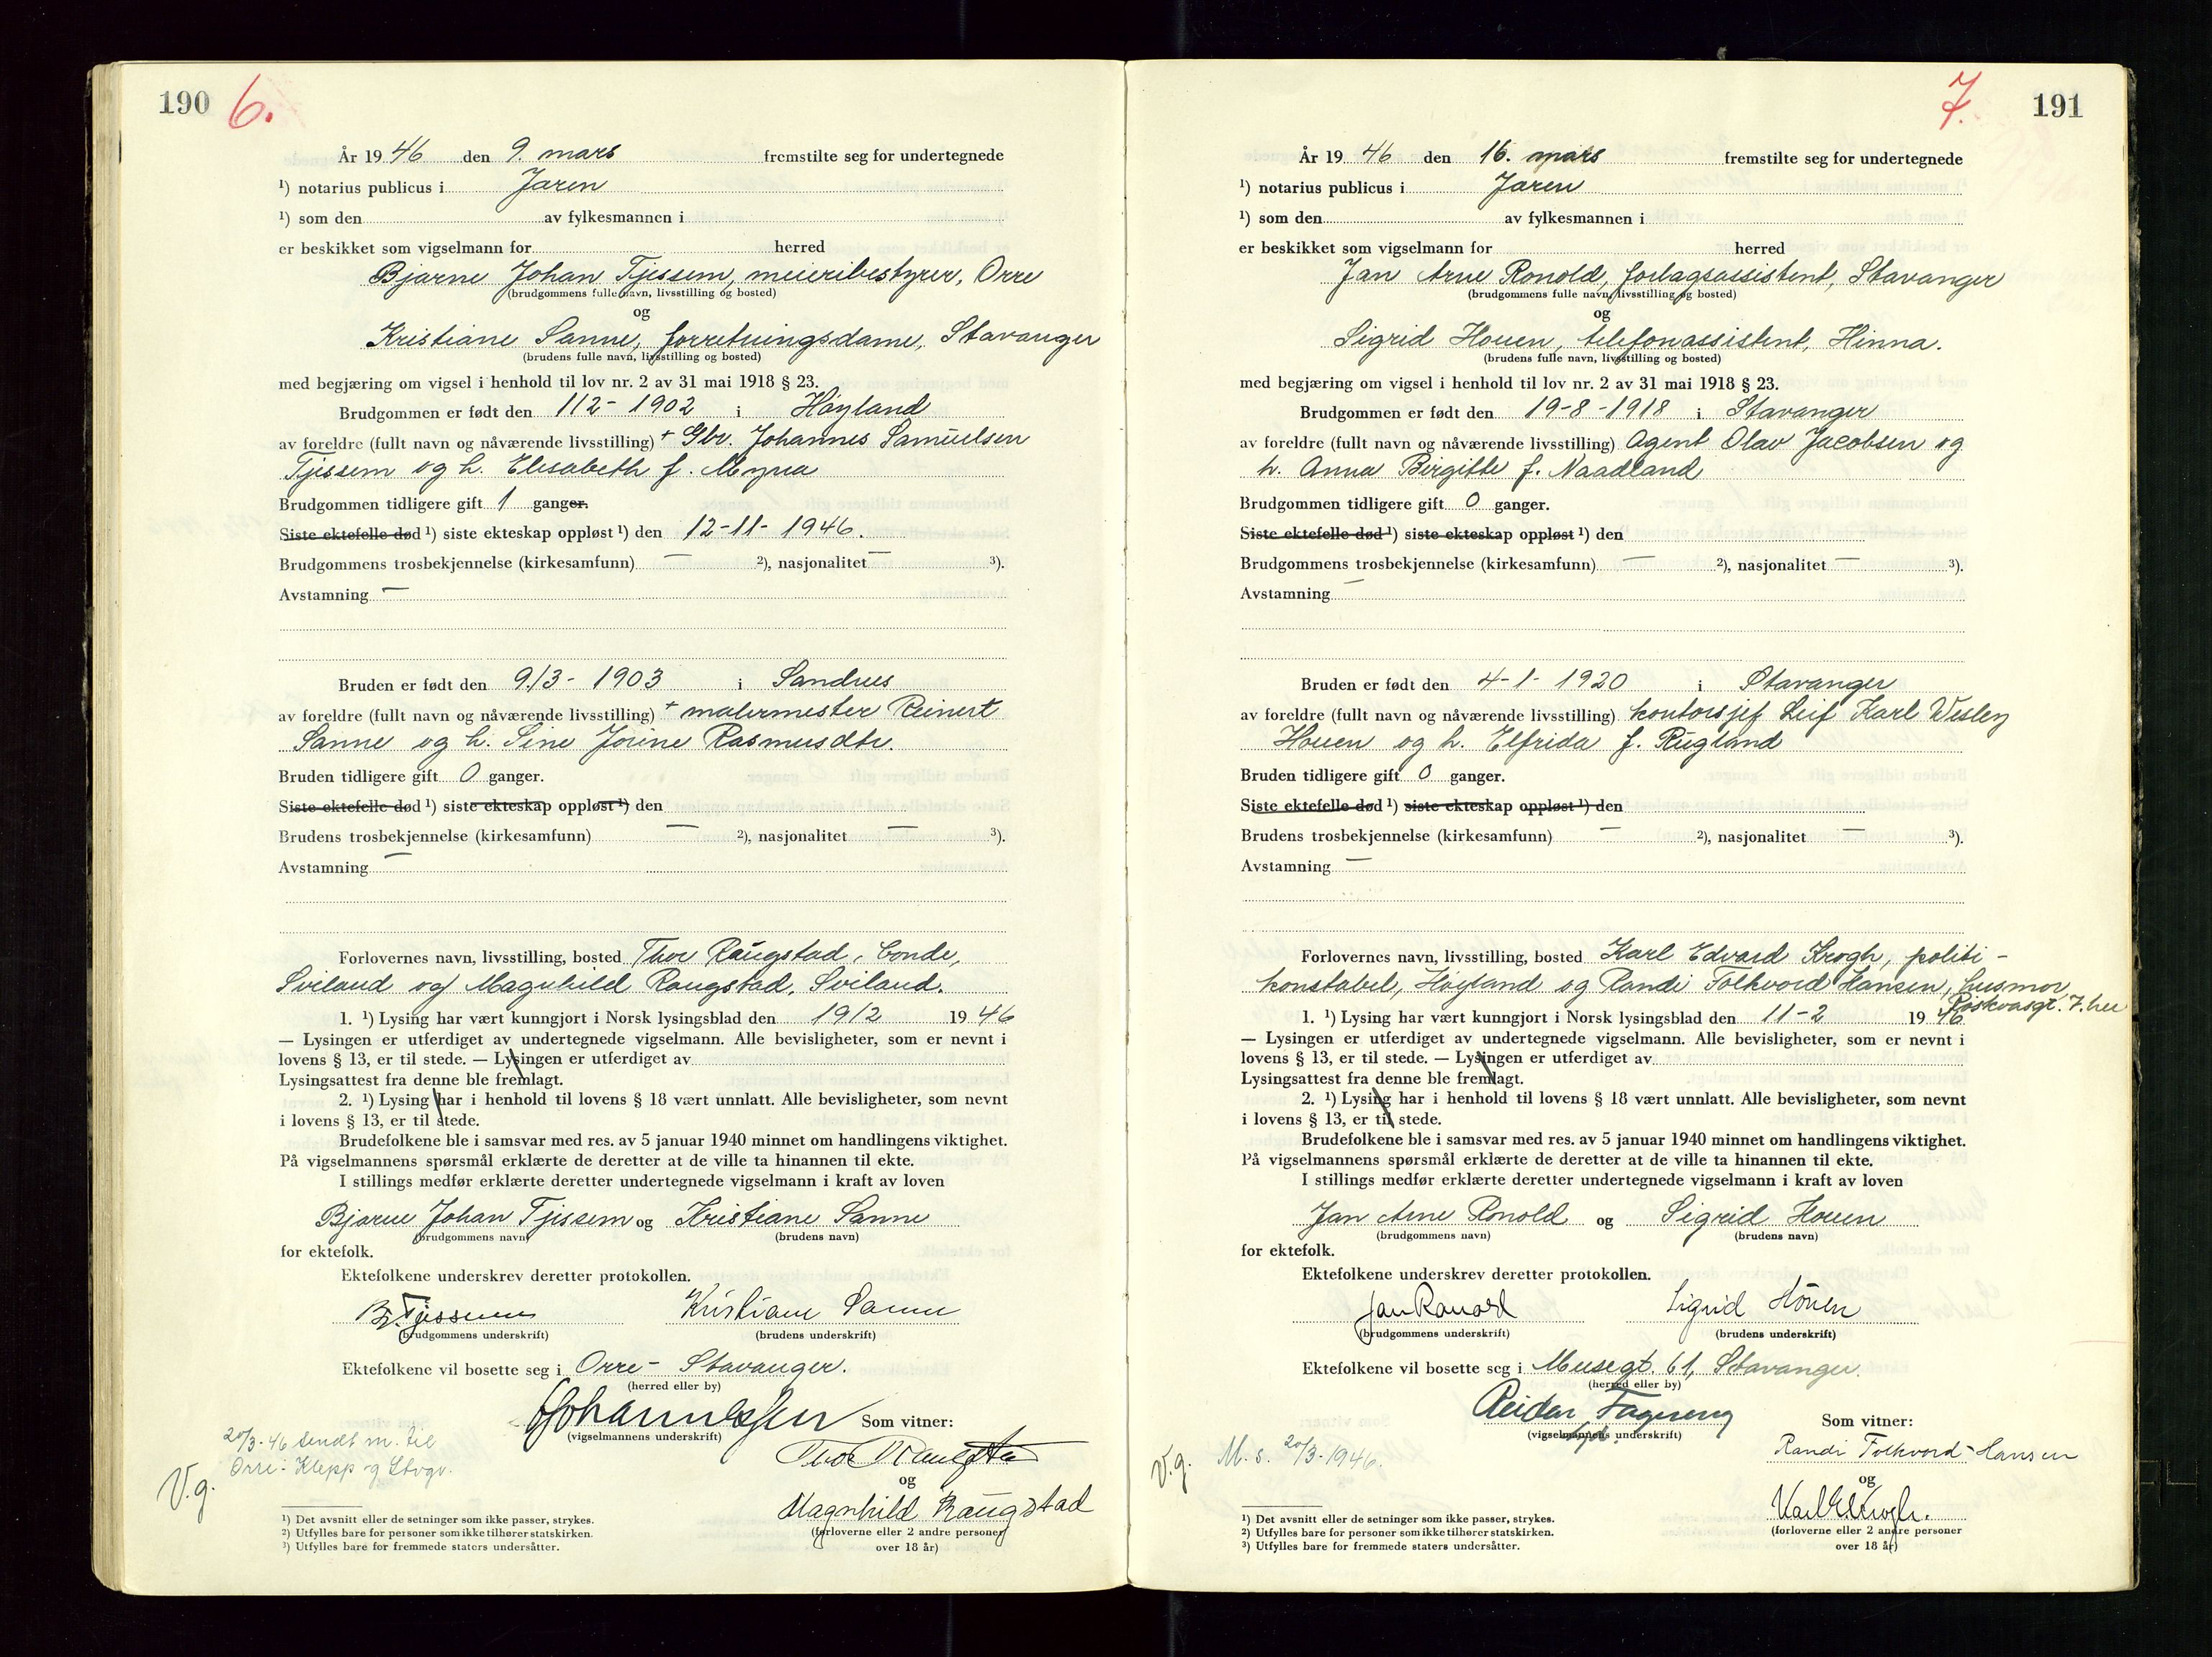 190 6.
År 19 46 den 9. mars fremstilte seg for undertegnede
¹) notarius publicus i Jæren
¹) som den av fylkesmannen i
er beskikket som vigselmann for herred
Bjarne Johan Tjessem, meieribestyrer, Orre
(brudgommens fulle navn, livsstilling og bosted)
og
Kristiane Sanne, forretningsdame, Stavanger
(brudens fulle navn, livsstilling og bosted)
med begjæring om vigsel i henhold til lov nr. 2 av 31 mai 1918 § 23.
Brudgommen er født den 1/12- 1902 i Høyland
av foreldre (fullt navn og nåværende livsstilling) + Gbr. Johannes Samuelsen
Tjessem og h. Elisabeth f. Myra
Brudgommen tidligere gift 1 ganger.
Siste ektefelle død ¹) siste ekteskap oppløst ¹) den 12-11- 1946.
Brudgommens trosbekjennelse (kirkesamfunn) — ²), nasjonalitet — ³).
Avstamning —
Bruden er født den 9/3- 1903 i Sandnes
av foreldre (fullt navn og nåværende livsstilling) + malermester Reinert
Sanne og h. Sine Jorine Rasmusdtr.
Bruden tidligere gift 0 ganger.
Siste ektefelle død ¹) siste ekteskap oppløst ¹) den
Brudens trosbekjennelse (kirkesamfunn) — ²), nasjonalitet — ³).
Avstamning —
Forlovernes navn, livsstilling, bosted Thor Raugstad, bonde,
Sviland og Magnhild Raugstad, Sviland.
1. ¹) Lysing har vært kunngjort i Norsk lysingsblad den 19/2 19 46
— Lysingen er utferdiget av undertegnede vigselmann. Alle bevisligheter, som er nevnt i
lovens § 13, er til stede. — Lysingen er utferdiget av
Lysingsattest fra denne ble fremlagt.
2. ¹) Lysing har i henhold til lovens § 18 vært unnlatt. Alle bevisligheter, som nevnt
i lovens § 13, er til stede.
Brudefolkene ble i samsvar med res. av 5 januar 1940 minnet om handlingens viktighet.
På vigselmannens spørsmål erklærte de deretter at de ville ta hinannen til ekte.
I stillings medfør erklærte deretter undertegnede vigselmann i kraft av loven
Bjarne Johan Tjessem og Kristiane Sanne
(brudgommens navn) (brudens navn)
for ektefolk.
Ektefolkene underskrev deretter protokollen.
B. Tjessem Kristiane Sanne
(brudgommens underskrift) (brudens underskrift)
Ektefolkene vil bosette seg i Orre- Stavanger.
(herred eller by)
Johannessen Som vitner:
(vigselmannens underskrift)
20/3-46 sendt m. til
Orre- Klepp og Stvgr.
V.g.
Thor Raugstad
og
Magnhild Raugstad
(forloverne eller 2 andre personer
over 18 år)
¹) Det avsnitt eller de setninger som ikke passer, strykes.
²) Utfylles bare for personer som ikke tilhører statskirken.
³) Utfylles bare for fremmede staters undersåtter.
7. 191
År 19 46 den 16. mars fremstilte seg for undertegnede
¹) notarius publicus i Jæren
¹) som den av fylkesmannen i
er beskikket som vigselmann for herred
Jan Arne Ronold, forlagsassistent, Stavanger
(brudgommens fulle navn, livsstilling og bosted)
og
Sigrid Houen, telefonassistent, Hinna.
(brudens fulle navn, livsstilling og bosted)
med begjæring om vigsel i henhold til lov nr. 2 av 31 mai 1918 § 23.
Brudgommen er født den 19-8-1918 i Stavanger
av foreldre (fullt navn og nåværende livsstilling) Agent Olav Jacobsen og
h. Anna Bergitte f. Naadland
Brudgommen tidligere gift 0 ganger.
Siste ektefelle død ¹) siste ekteskap oppløst ¹) den
Brudgommens trosbekjennelse (kirkesamfunn) — ²), nasjonalitet — ³).
Avstamning —
Bruden er født den 4-1- 1920 i Stavanger
av foreldre (fullt navn og nåværende livsstilling) kontorsjef Leif Karl Wesley
Houen og h. Elfrida f. Rugland
Bruden tidligere gift 0 ganger.
Siste ektefelle død ¹) siste ekteskap oppløst ¹) den
Brudens trosbekjennelse (kirkesamfunn) — ²), nasjonalitet — ³).
Avstamning —
Forlovernes navn, livsstilling, bosted Karl Edvard Krogh, politi-
konstabel, Høyland og Randi Folkvord Hansen, husmor,
1. ¹) Lysing har vært kunngjort i Norsk lysingsblad den 11-2 19 46
— Lysingen er utferdiget av undertegnede vigselmann. Alle bevisligheter, som er nevnt i
lovens § 13, er til stede. — Lysingen er utferdiget av
Lysingsattest fra denne ble fremlagt.
2. ¹) Lysing har i henhold til lovens § 18 vært unnlatt. Alle bevisligheter, som nevnt
i lovens § 13, er til stede.
Brudefolkene ble i samsvar med res. av 5 januar 1940 minnet om handlingens viktighet.
På vigselmannens spørsmål erklærte de deretter at de ville ta hinannen til ekte.
I stillings medfør erklærte deretter undertegnede vigselmann i kraft av loven
Jan Arne Ronold og Sigrid Houen
(brudgommens navn) (brudens navn)
for ektefolk.
Ektefolkene underskrev deretter protokollen.
Jan Ronold Sigrid Houen
(brudgommens underskrift) (brudens underskrift)
Ektefolkene vil bosette seg i Musegt. 61, Stavanger.
(herred eller by)
Reidar Fagereng Som vitner:
(vigselmannens underskrift)
V.g. M. s. 20/3-1946.
Randi Folkvord-Hansen
og
Karl E. Krogh.
(forloverne eller 2 andre personer
over 18 år)
¹) Det avsnitt eller de setninger som ikke passer, strykes.
²) Utfylles bare for personer som ikke tilhører statskirken.
³) Utfylles bare for fremmede staters undersåtter.